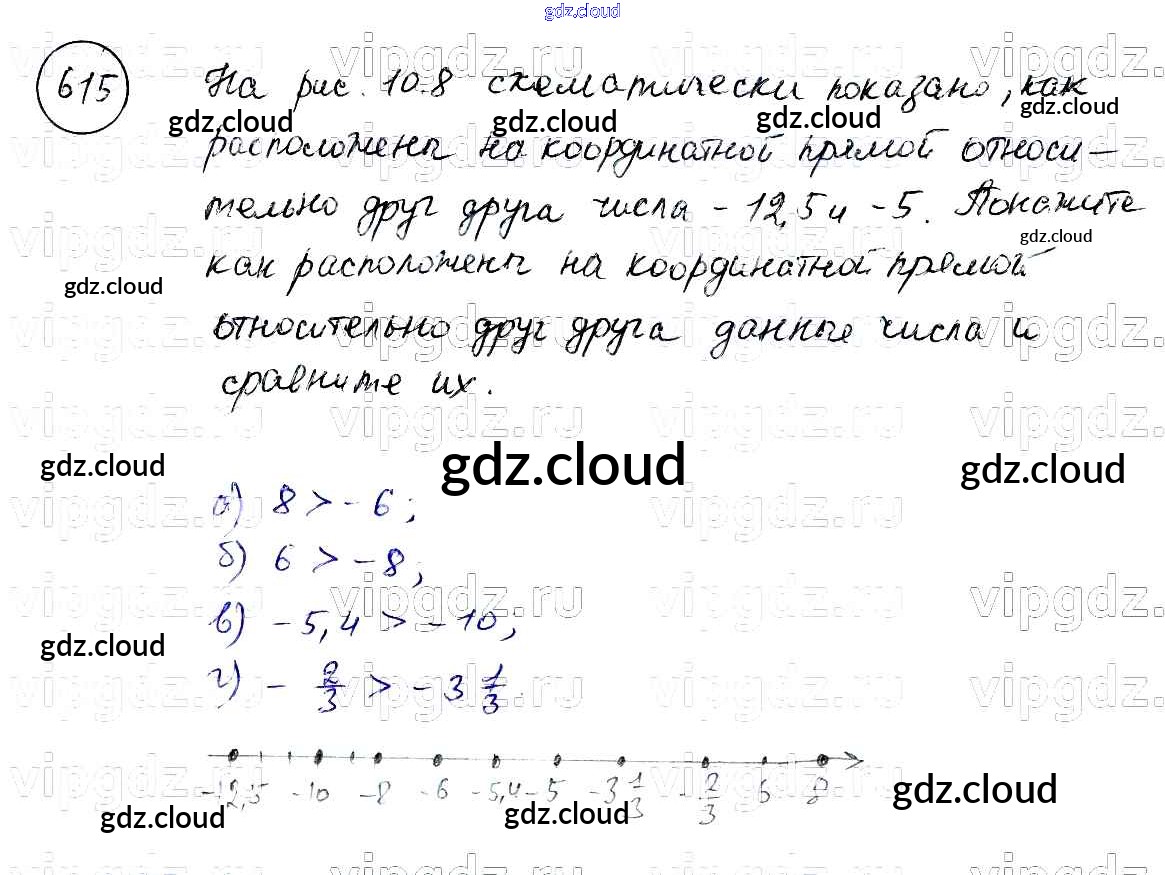 gdz.cloud
615 На рис. 10.8 схематически показано, как
расположены на координатной прямой относи-
тельно друг друга числа -12,5 и -5. Покажите
как расположены на координатной прямой
относительно друг друга данные числа и
сравните их.
а) 8 > -6;
б) 6 > -8;
в) -5,4 > -10;
г) - 2/3 > -3 1/3.
-12,5 -10 -8 -6 -5,4 -5 -3 1/3 -2/3 6 8
gdz.cloud gdz.cloud gdz.cloud gdz.cloud
gdz.cloud
gdz.cloud
gdz.cloud gdz.cloud gdz.cloud
gdz.cloud
gdz.cloud gdz.cloud gdz.cloud
vipgdz.ru vipgdz.ru vipgdz.ru vipgdz.ru